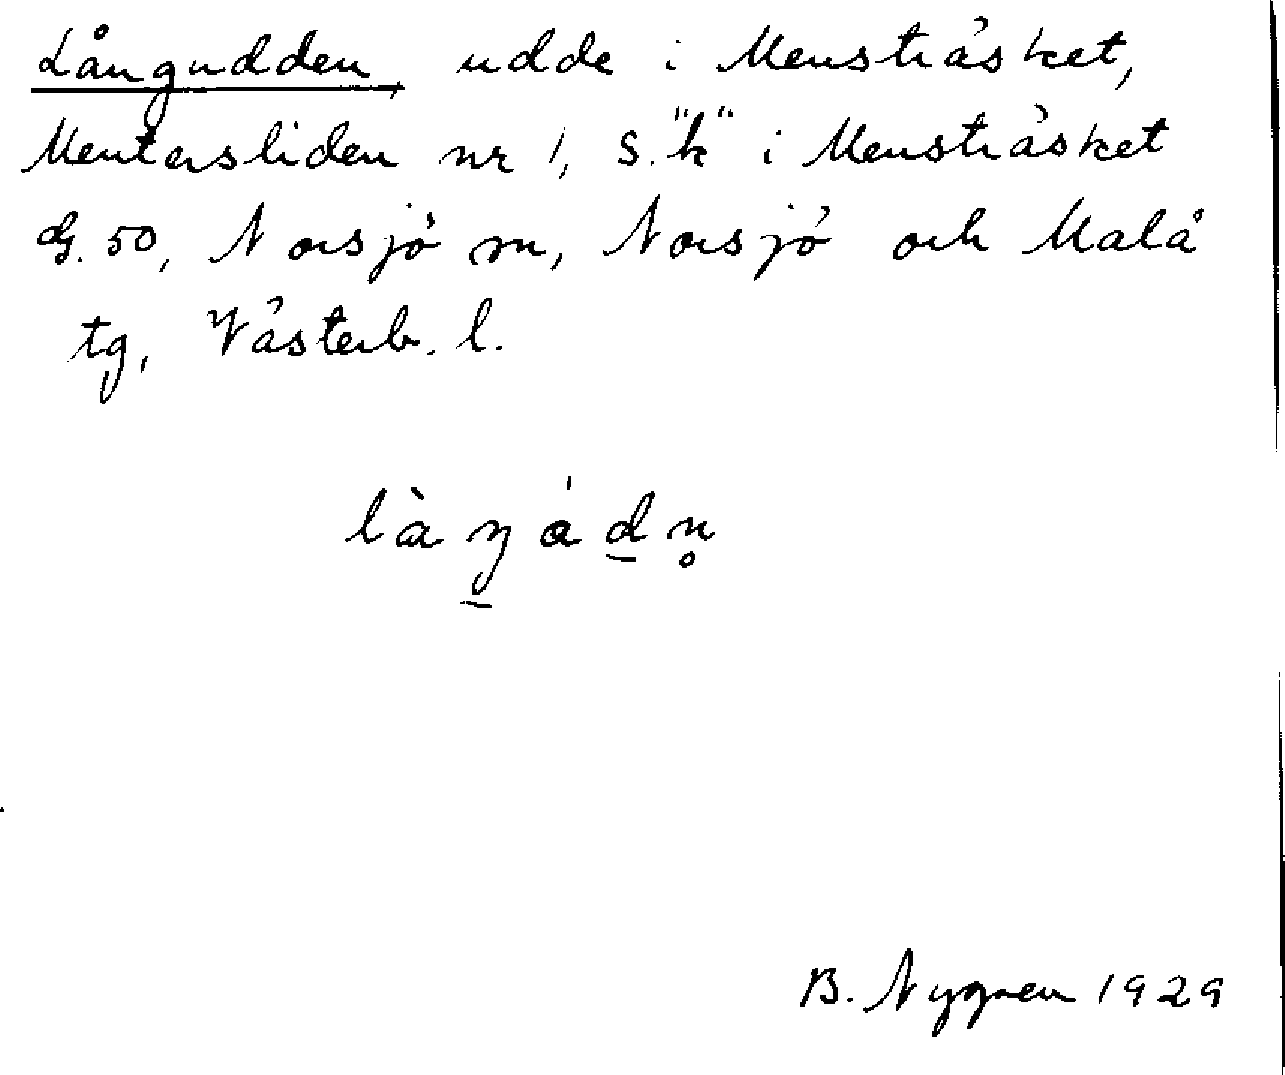 Långudden, udde i Mensträsket,
Mentersliden nr 1, S. "k" i Mensträsket
G. 50, Norsjö sn, Norsjö och Malå
tg, Västerb. l.
làŋádn̥
B. Nygren 1929